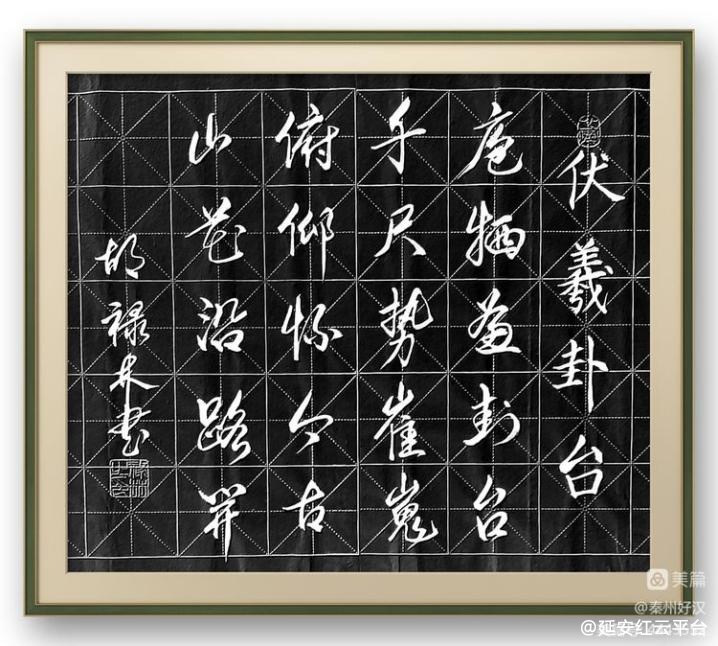 伏羲卦台
庖牺画卦台
千尺势崔嵬
俯仰怀今古
山花沿路开
胡禄林书
美篇
@秦州好汉
@延安红云平台